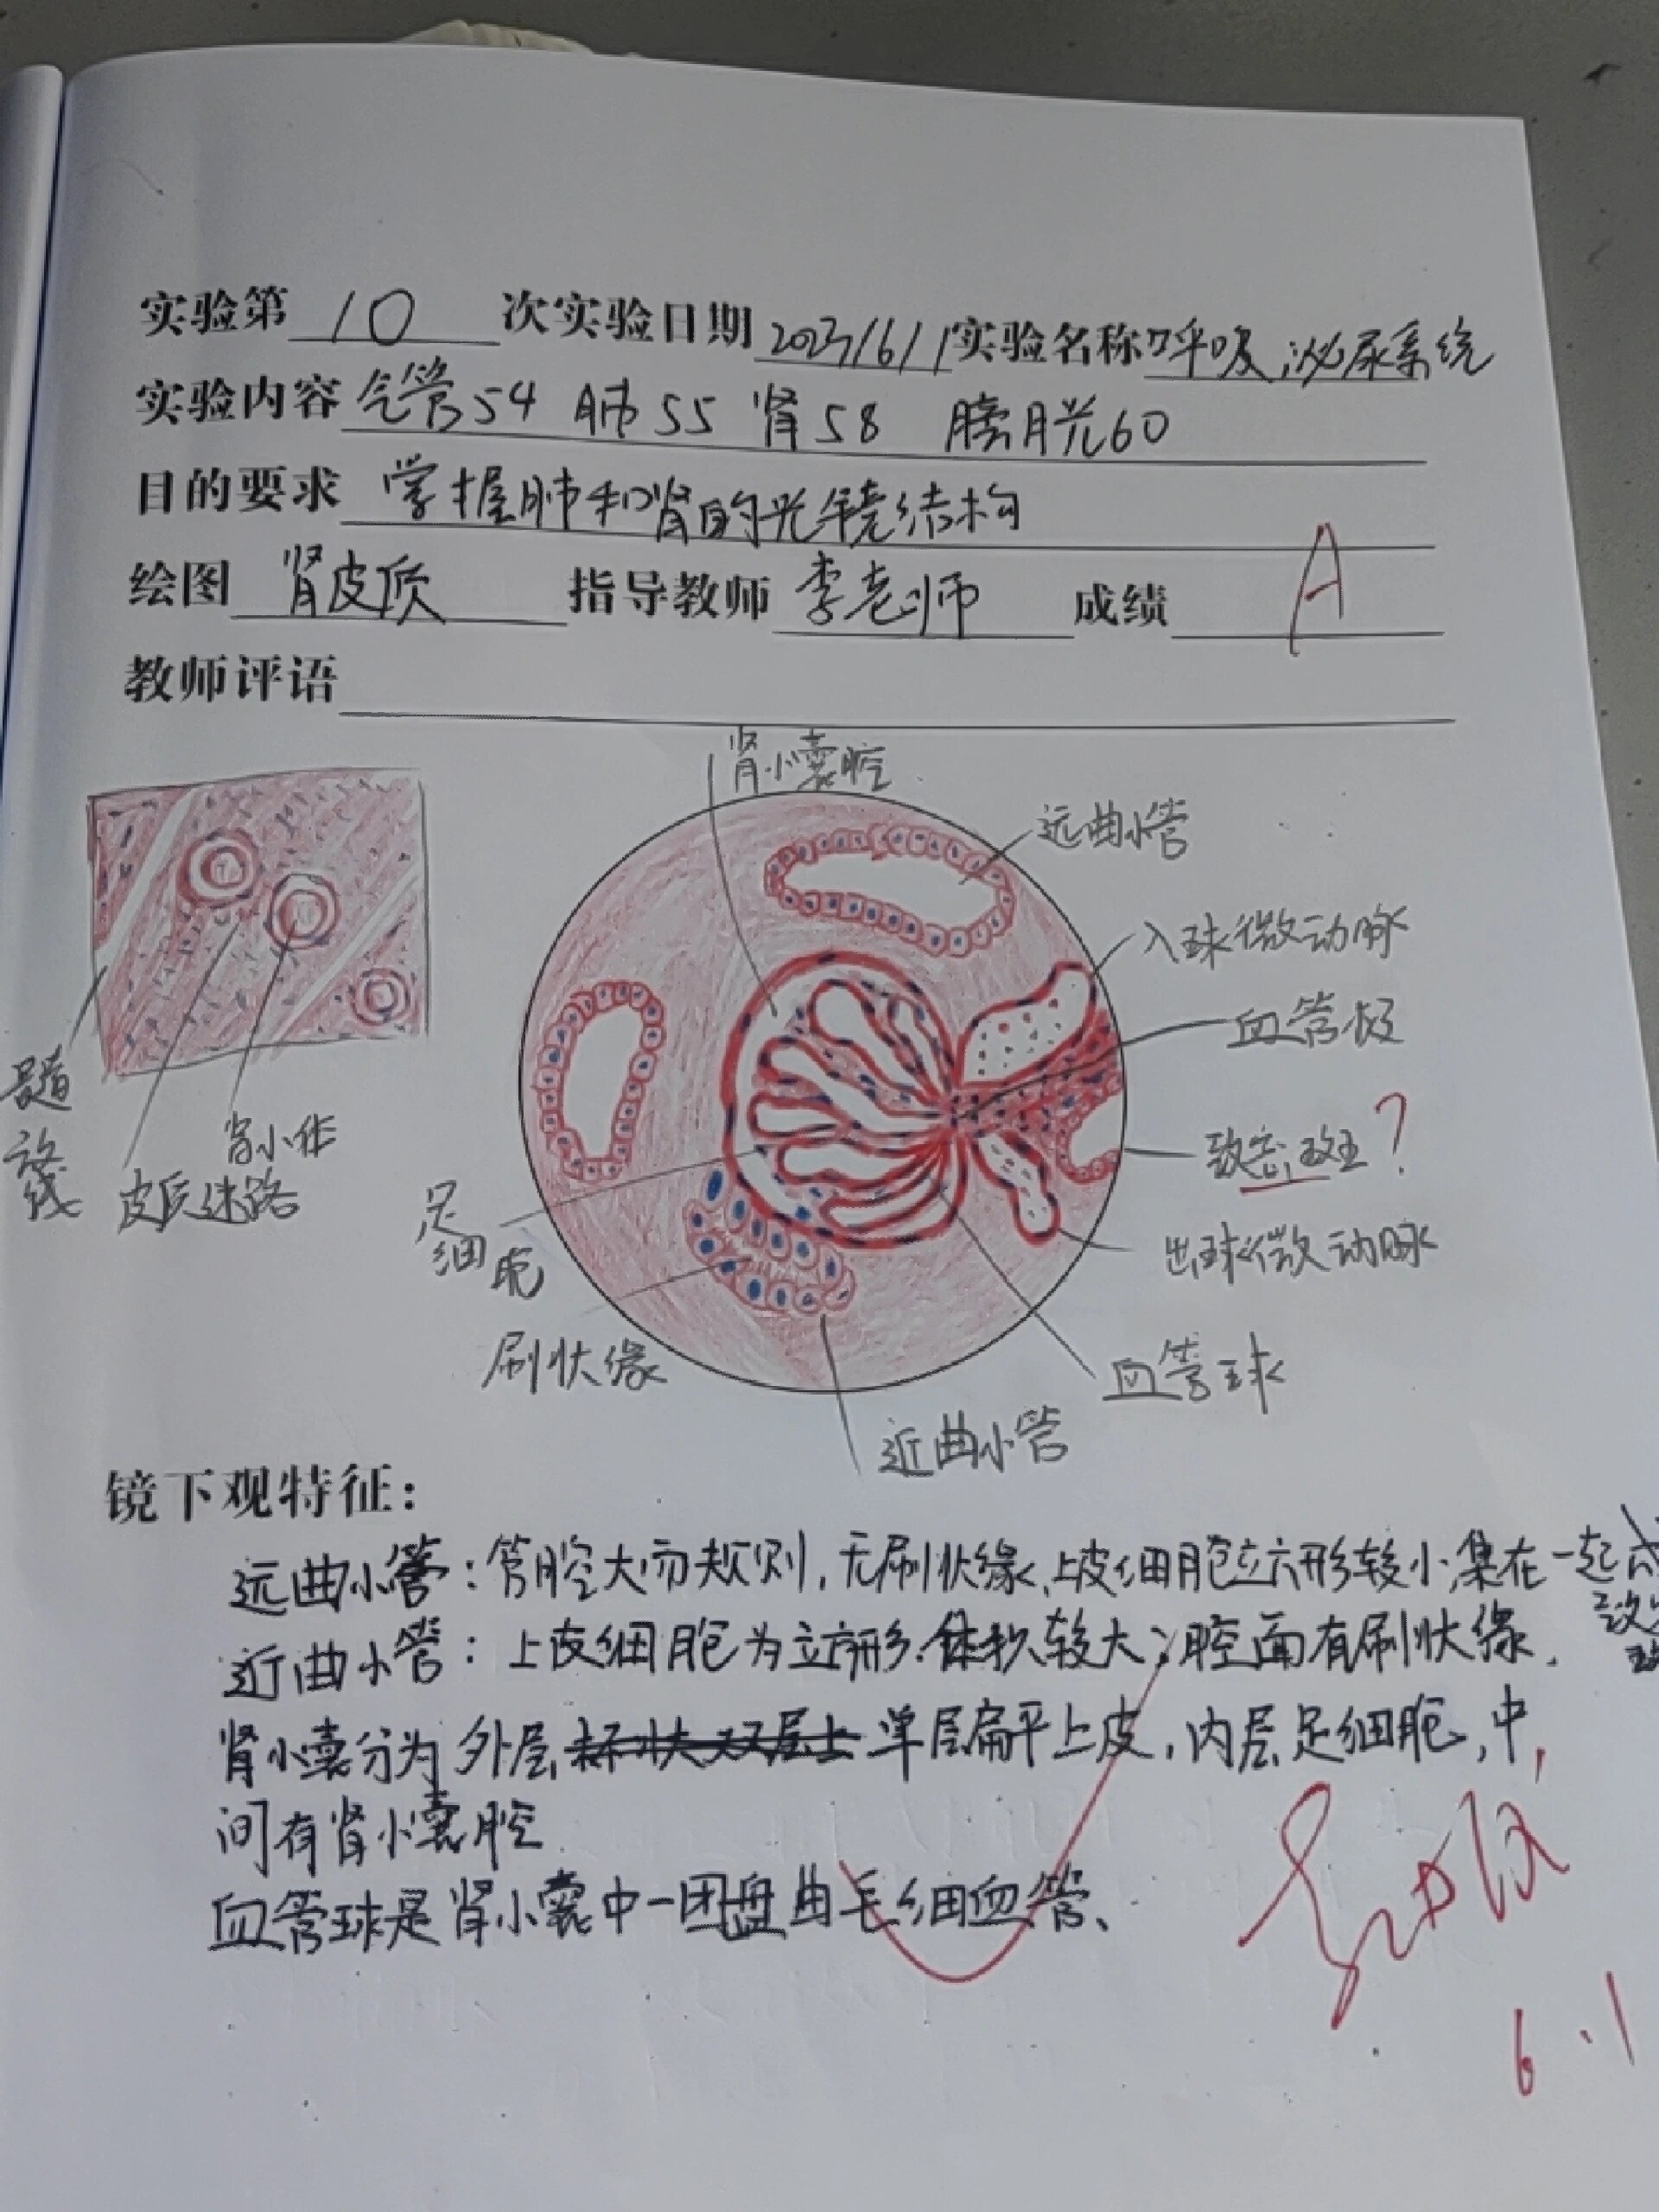 实验第 10 次实验日期 2023/6/1 实验名称 呼吸、泌尿系统
实验内容 气管54 肺55 肾58 膀胱60
目的要求 掌握肺和肾的光镜结构
绘图 肾皮质 指导教师 李老师 成绩 A
教师评语
肾小囊腔
远曲小管
入球微动脉
血管极
致密斑?
出球微动脉
血管球
近曲小管
刷状缘
足细胞
肾小体
皮质迷路
髓放线
镜下观特征:
远曲小管:管腔大而规则,无刷状缘,上皮细胞立方形较小,集在一起
近曲小管:上皮细胞为立方形.体积较大;腔面有刷状缘.
肾小囊分为外层杯状双层上单层扁平上皮,内层足细胞,中
间有肾小囊腔
血管球是肾小囊中一团盘曲毛细血管、
6.1